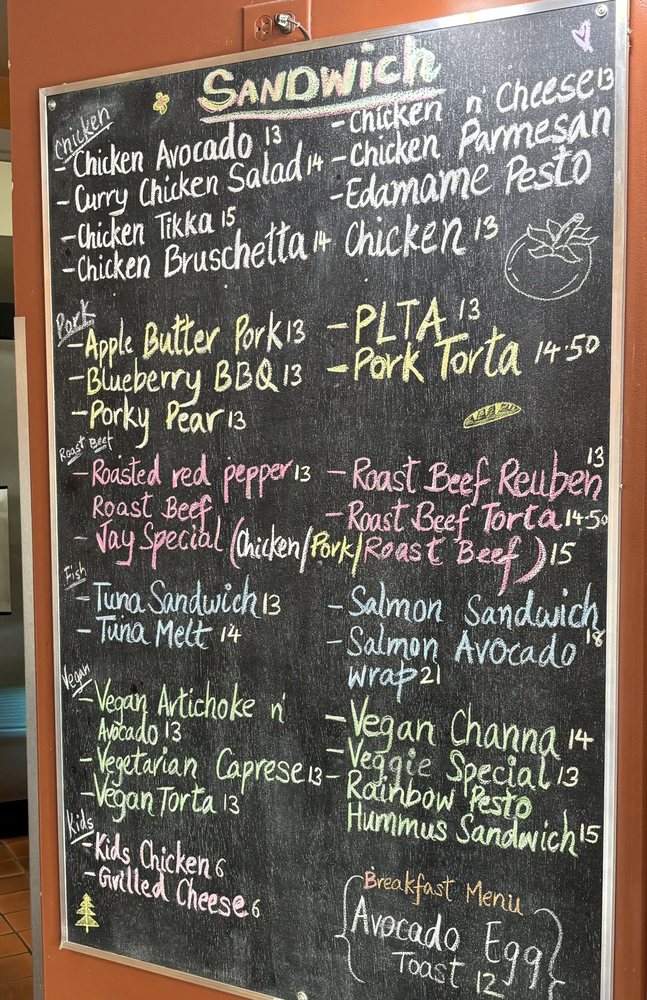 SANDWich
Chicken
- Chicken Avocado 13
- Curry Chicken Salad 14
- Chicken Tikka 15
- Chicken Bruschetta 14
- Chicken n' Cheese 13
- Chicken Parmesan
- Edamame Pesto
Chicken 13
Pork
- Apple Butter Pork 13
- Blueberry BBQ 13
- Porky Pear 13
- PLTA 13
- Pork Torta 14.50
Roast Beef
- Roasted red pepper 13
Roast Beef
- Jay Special (Chicken/Pork/Roast Beef) 15
- Roast Beef Reuben 13
- Roast Beef Torta 14.50
Fish
- Tuna Sandwich 13
- Tuna Melt 14
- Salmon Sandwich 18
- Salmon Avocado
wrap 21
Vegan
- Vegan Artichoke n'
Avocado 13
- Vegetarian Caprese 13
- Vegan Torta 13
- Vegan Channa 14
- Veggie Special 13
- Rainbow Pesto
Hummus Sandwich 15
Kids
- Kids Chicken 6
- Grilled Cheese 6
Breakfast Menu
Avocado Egg
Toast 12